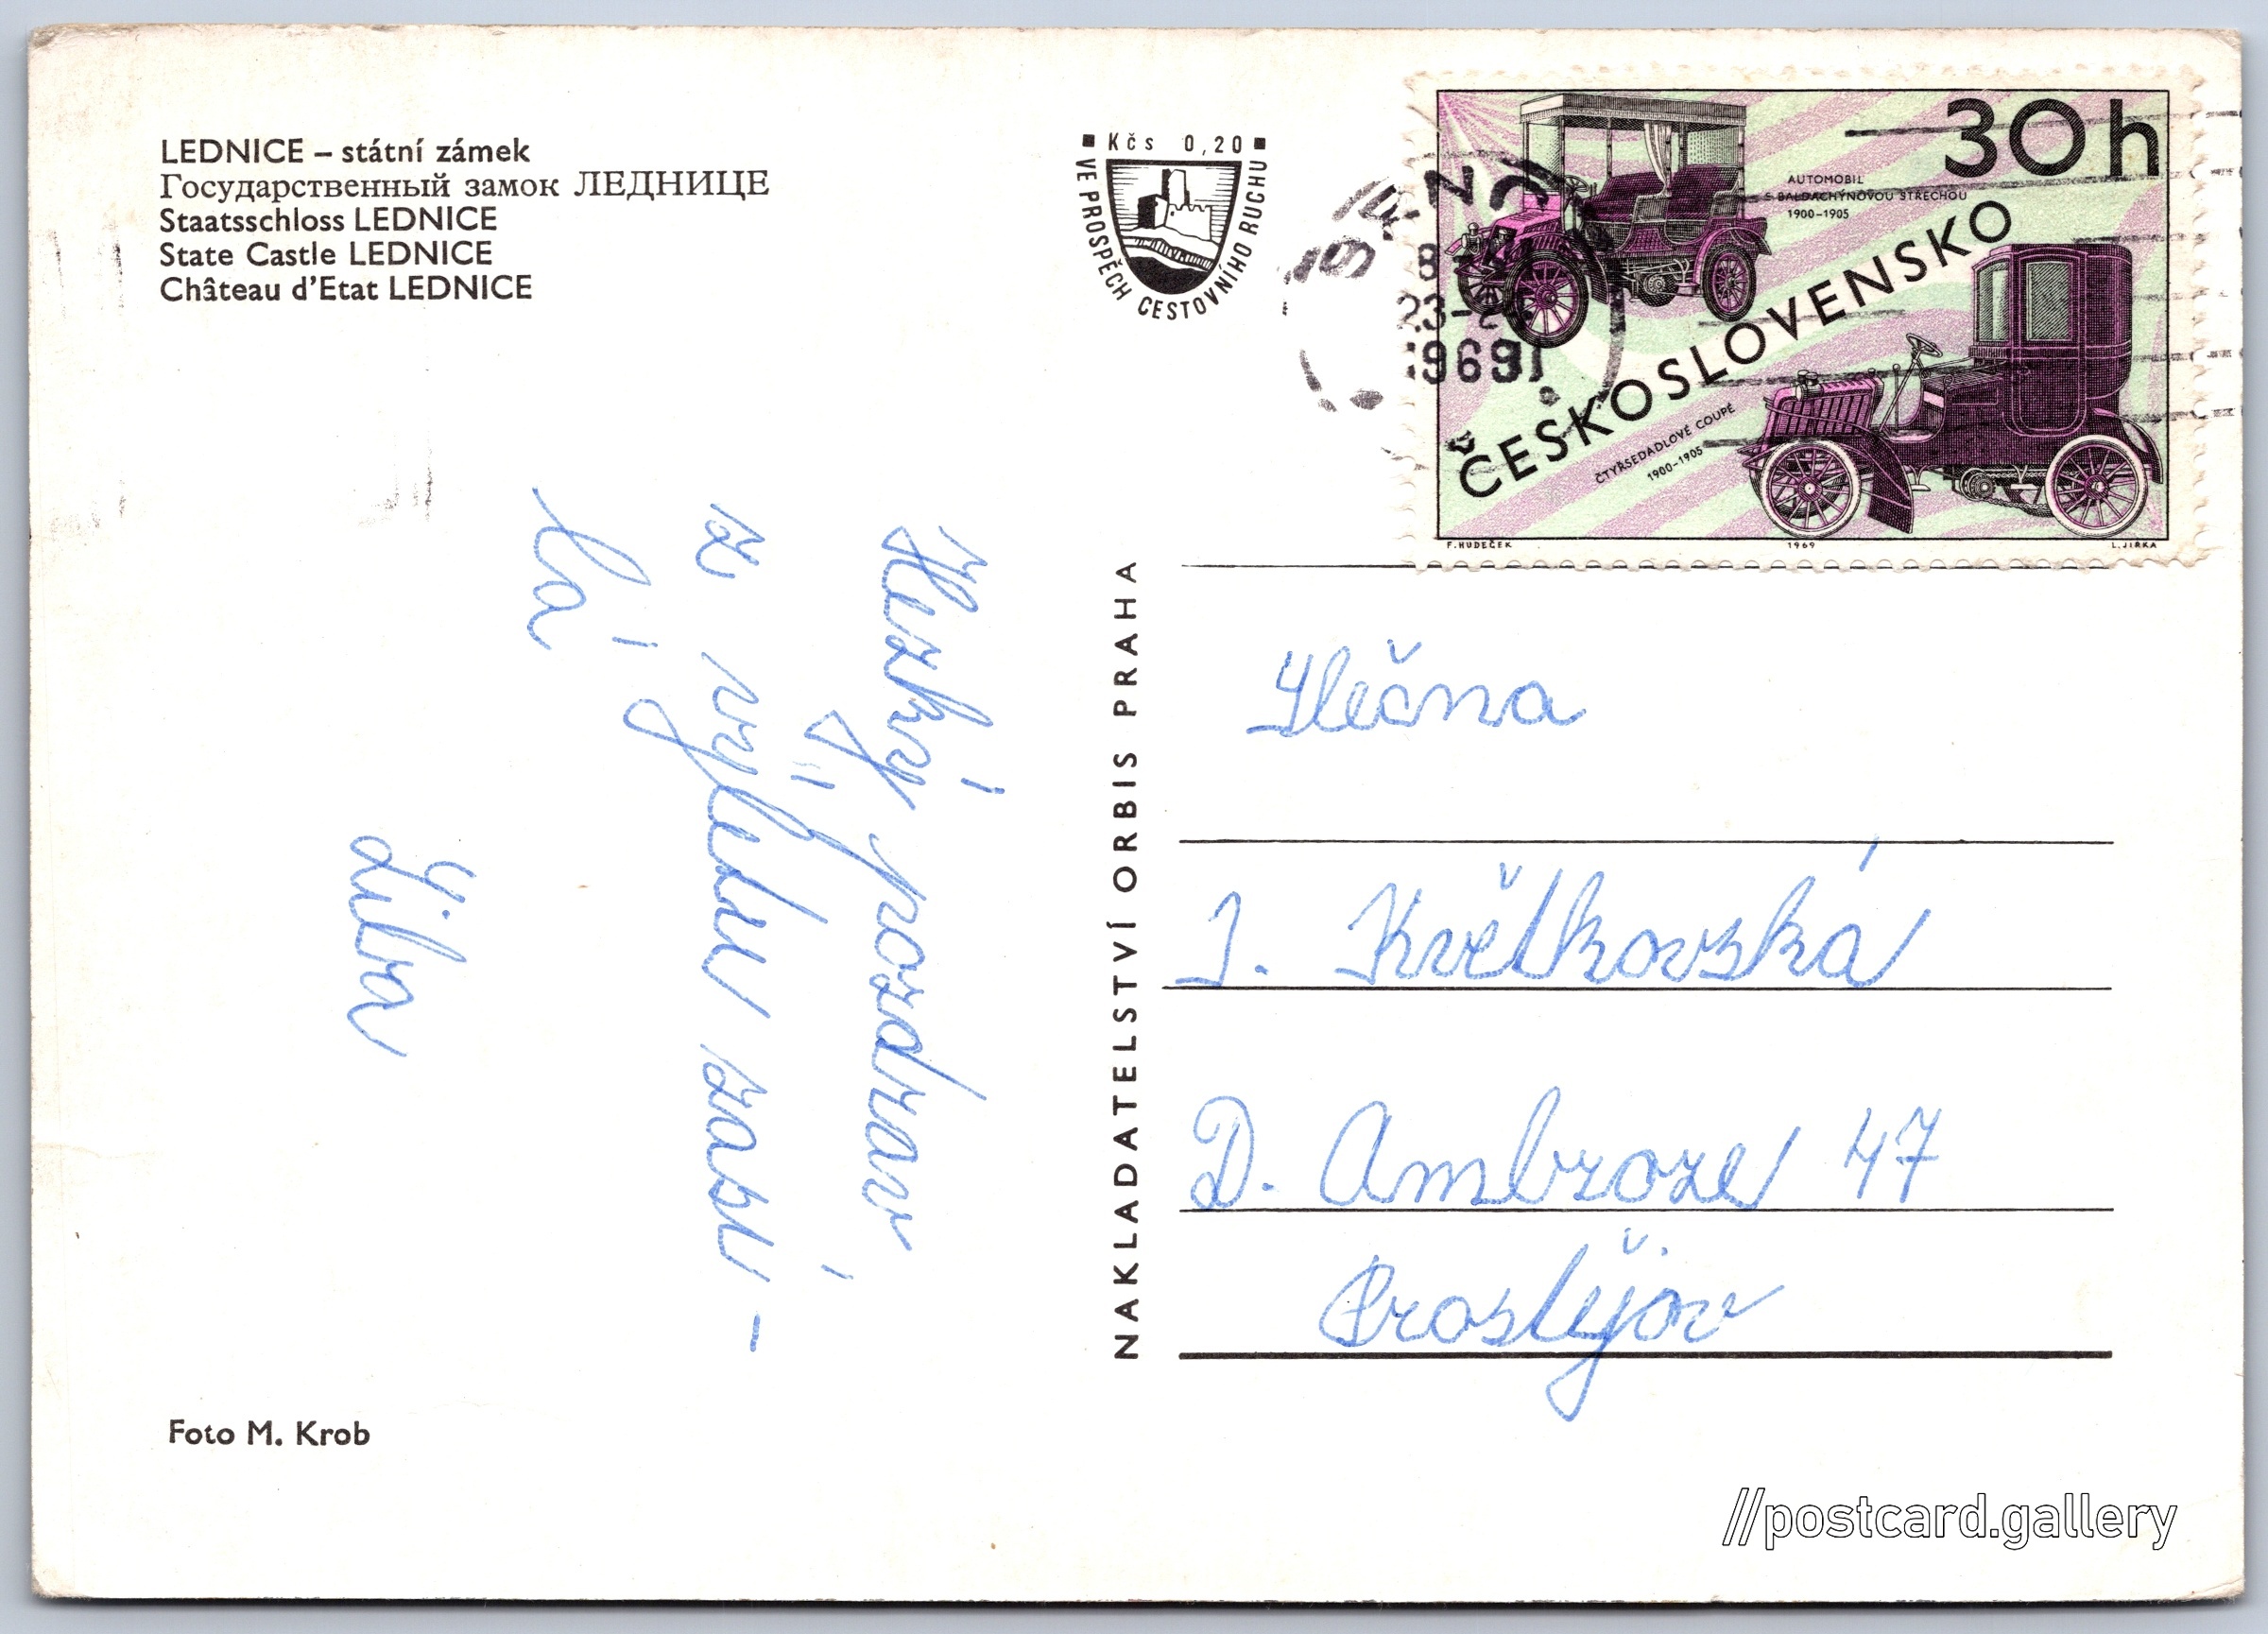 LEDNICE – státní zámek
Государственный замок ЛЕДНИЦЕ
Staatsschloss LEDNICE
State Castle LEDNICE
Château d'Etat LEDNICE
Kčs 0,20
VE PROSPĚCH CESTOVNÍHO RUCHU
30h
AUTOMOBIL
S BALDACHÝNOVOU STŘECHOU
1900–1905
ČESKOSLOVENSKO
ČTYŘSEDADLOVÉ COUPÉ
1900–1905
F. HUDEČEK 1969 L. JIRKA
1969
Hezký pozdrav
z výletu zasí-
lá
Liba
NAKLADATELSTVÍ ORBIS PRAHA
Slečna
J. Květkovská
D. Ambroze 47
Prostějov
Foto M. Krob
//postcard.gallery